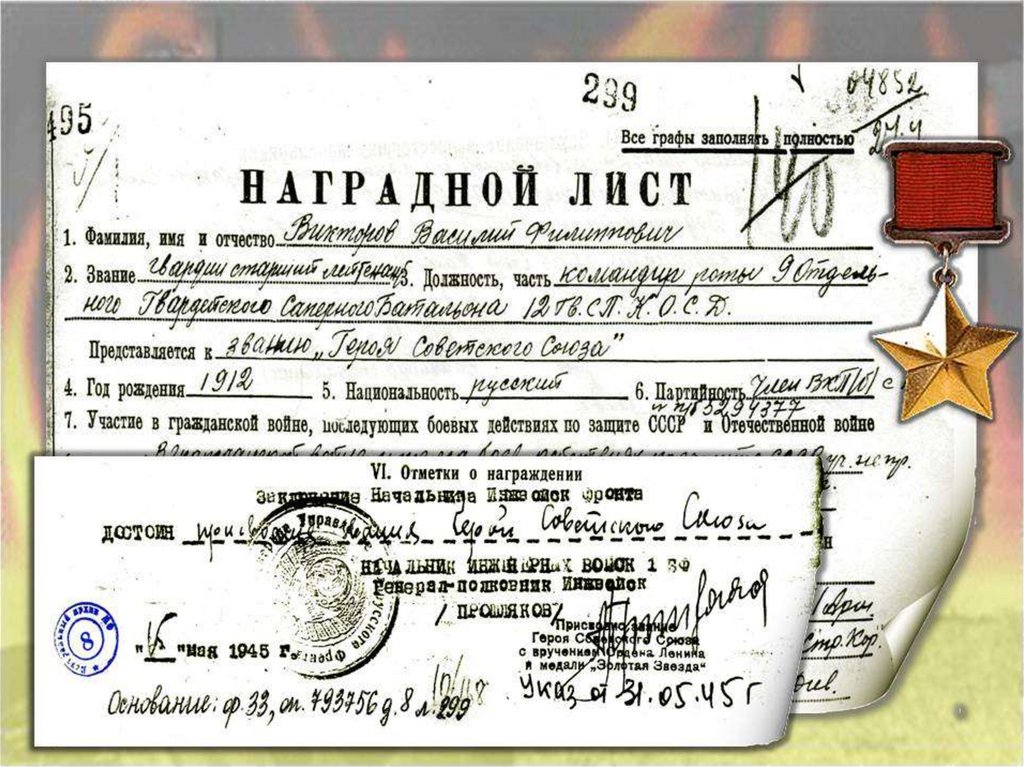 495
299
04852
Все графы заполнять полностью
27.4
НАГРАДНОЙ ЛИСТ
1. Фамилия, имя и отчество Викторов Василий Филиппович
2. Звание гвардии старший лейтенант 3. Должность, часть командир роты 9 Отдель-
ного Гвардейского Саперного Батальона 12 Гв. С. П. К. О. С. Д.
Представляется к званию „Героя Советского Союза"
4. Год рождения 1912 5. Национальность русский 6. Партийность Член ВКП(б) с
п/б 5294377
7. Участие в гражданской войне, последующих боевых действиях по защите СССР и Отечественной войне
VI. Отметки о награждении
Заключение Начальника Инжвойск фронта
достоин присвоения звания Герой Советского Союза
НАЧАЛЬНИК ИНЖЕНЕРНЫХ ВОЙСК 1 БФ
Генерал-полковник Инжвойск
/ ПРОШЛЯКОВ/
Присвоено звание
Героя Советского Союза
с вручением Ордена Ленина
и медали „Золотая Звезда"
Указ от 31.05.45 г
8
" " мая 1945 г.
Основание: ф. 33, оп. 793756 д. 8 л. 299